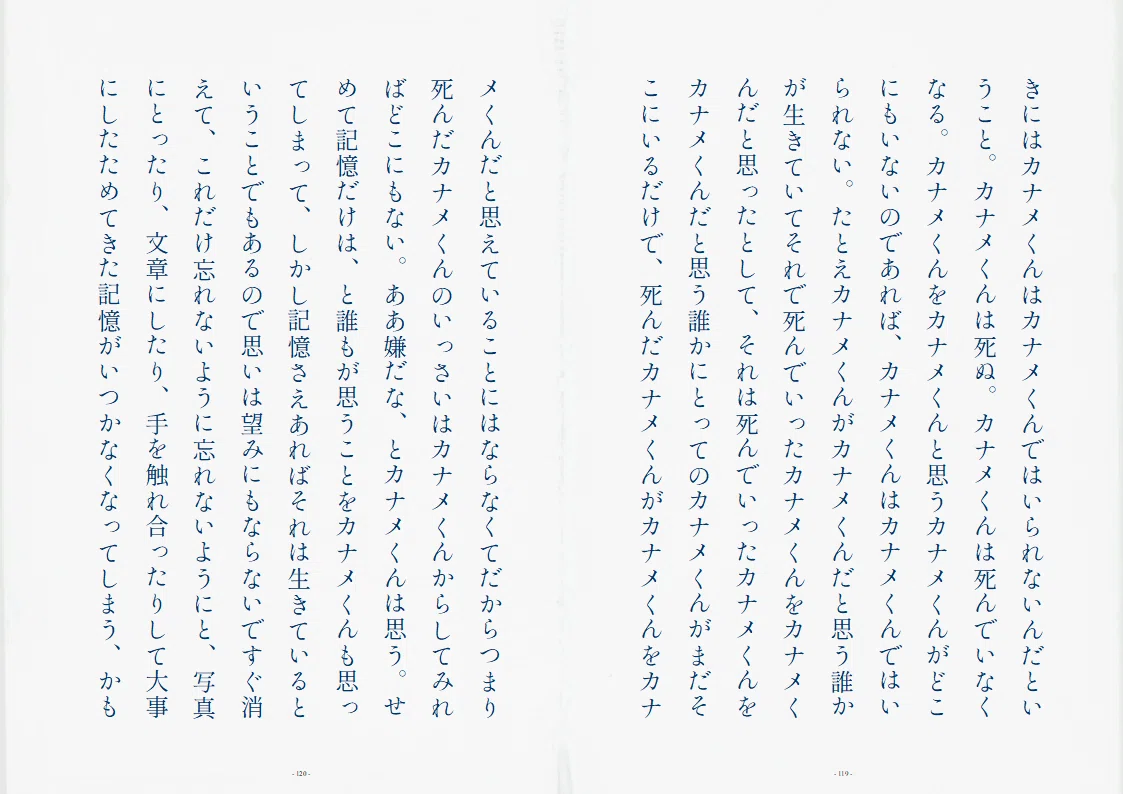 きにはカナメくんはカナメくんではいられないんだとい
うこと。カナメくんは死ぬ。カナメくんは死んでいなく
なる。カナメくんをカナメくんと思うカナメくんがどこ
にもいないのであれば、カナメくんはカナメくんではい
られない。たとえカナメくんがカナメくんだと思う誰か
が生きていてそれで死んでいったカナメくんをカナメく
んだと思ったとして、それは死んでいったカナメくんを
カナメくんだと思う誰かにとってのカナメくんがまだそ
こにいるだけで、死んだカナメくんがカナメくんをカナ
- 119 -
メくんだと思えていることにはならなくてだからつまり
死んだカナメくんのいっさいはカナメくんからしてみれ
ばどこにもない。ああ嫌だな、とカナメくんは思う。せ
めて記憶だけは、と誰もが思うことをカナメくんも思っ
てしまって、しかし記憶さえあればそれは生きていると
いうことでもあるので思いは望みにもならないですぐ消
えて、これだけ忘れないように忘れないようにと、写真
にとったり、文章にしたり、手を触れ合ったりして大事
にしたためてきた記憶がいつかなくなってしまう、かも
- 120 -